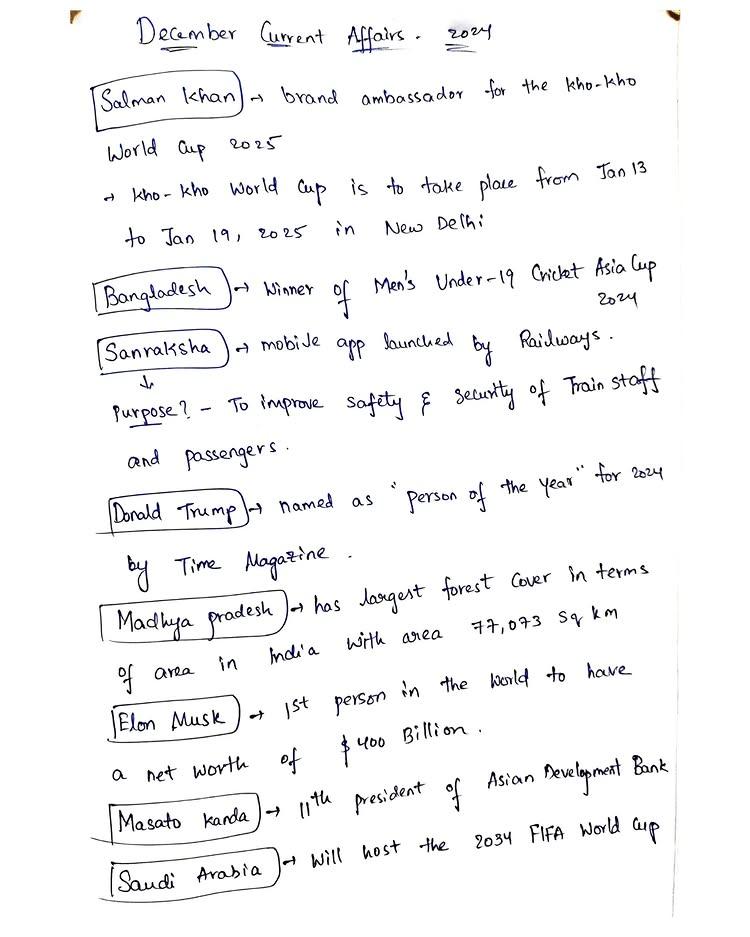 December Current Affairs. 2024
Salman Khan → brand ambassador for the Kho-Kho
World Cup 2025
→ Kho-Kho World Cup is to take place from Jan 13
to Jan 19, 2025 in New Delhi
Bangladesh → Winner of Men's Under-19 Cricket Asia Cup
2024
Sanraksha → mobile app launched by Railways.
↓
Purpose? - To improve safety & security of Train staff
and passengers.
Donald Trump → named as "person of the year" for 2024
by Time Magazine.
Madhya pradesh → has largest forest cover in terms
of area in India with area 77,073 sq km
Elon Musk → 1st person in the world to have
a net worth of $400 Billion.
Masato Kanda → 11th president of Asian Development Bank
Saudi Arabia → Will host the 2034 FIFA World Cup